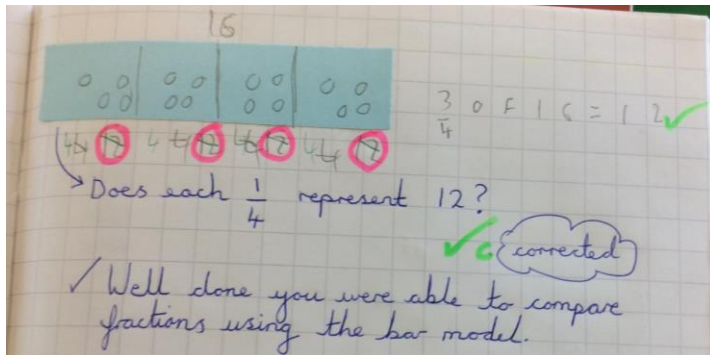 16
3/4 OF 16 = 12 ✓
4 12 4 12 4 12 4 12
Does each 1/4 represent 12?
✓ c corrected
✓ Well done you were able to compare
fractions using the bar model.